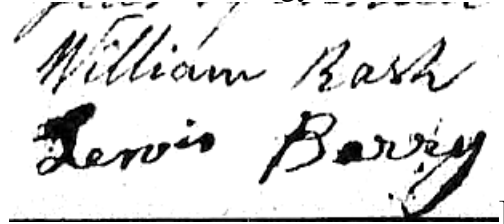 William Rash
Lewis Barry